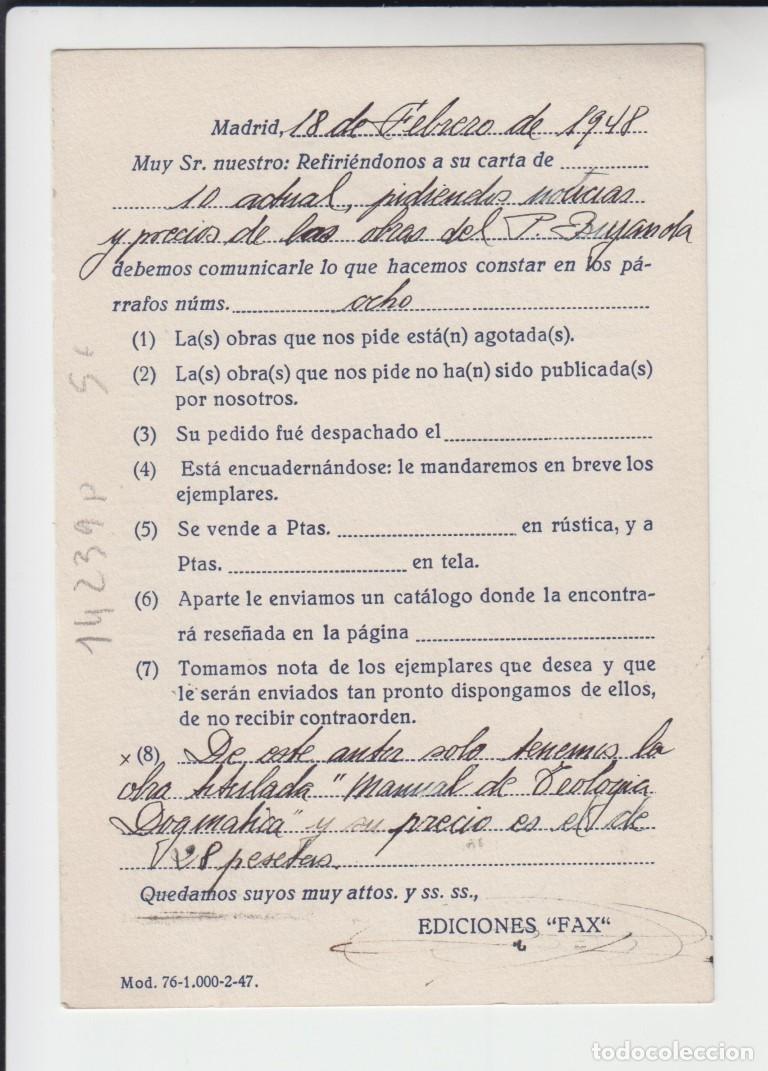 Madrid, 18 de Febrero de 1948
Muy Sr. nuestro: Refiriéndonos a su carta de
10 actual, pidiendos noticias
y precios de las obras del P. Bujanda
debemos comunicarle lo que hacemos constar en los pá-
rrafos núms. ocho
(1) La(s) obras que nos pide está(n) agotada(s).
(2) La(s) obra(s) que nos pide no ha(n) sido publicada(s)
por nosotros.
(3) Su pedido fué despachado el
(4) Está encuadernándose: le mandaremos en breve los
ejemplares.
(5) Se vende a Ptas. en rústica, y a
Ptas. en tela.
(6) Aparte le enviamos un catálogo donde la encontra-
rá reseñada en la página
(7) Tomamos nota de los ejemplares que desea y que
le serán enviados tan pronto dispongamos de ellos,
de no recibir contraorden.
x (8) De este autor solo tenemos la
obra titulada "Manual de Teologia
Dogmatica" y su precio es el de
28 pesetas.
Quedamos suyos muy attos. y ss. ss.,
EDICIONES "FAX"
Mod. 76-1.000-2-47.
14239p
todocoleccion